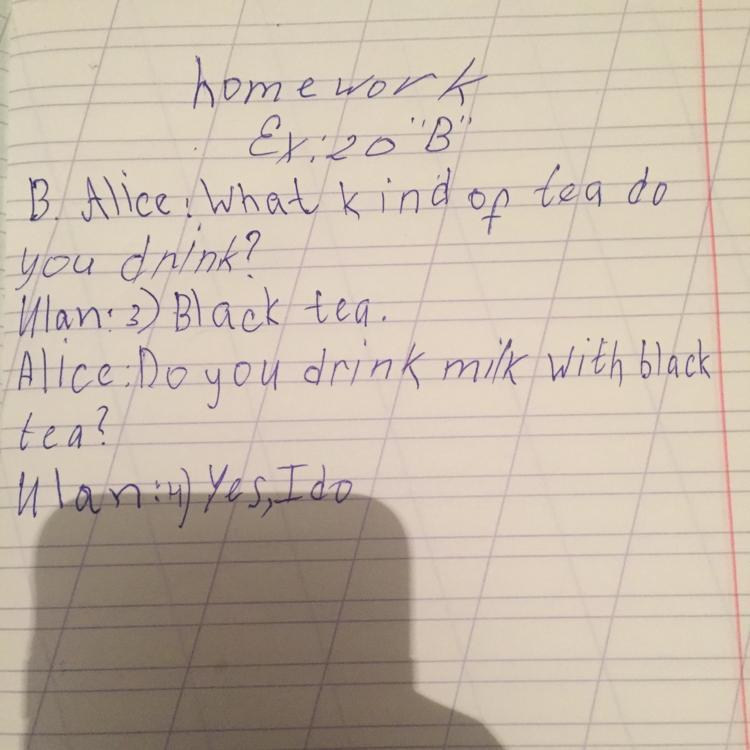 homework
Ex:20 "B"
B. Alice: What kind of tea do
you drink?
Ulan: 3) Black tea.
Alice: Do you drink milk with black
tea?
Ulan: 4) Yes, I do